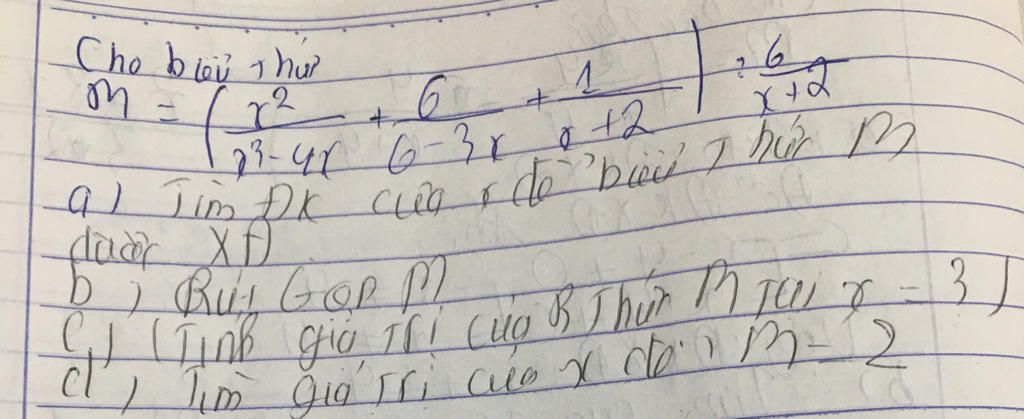 Cho biểu thức
M = ( x²/(x³-4x) + 6/(6-3x) + 1/(x+2) ) : 6/(x+2)
a) Tìm ĐK của x để biểu thức M
được XĐ
b) Rút Gọn M
c) (Tính giá Trị của B Thức M Tại x = 3)
d) Tìm giá Trị của x để M = 2